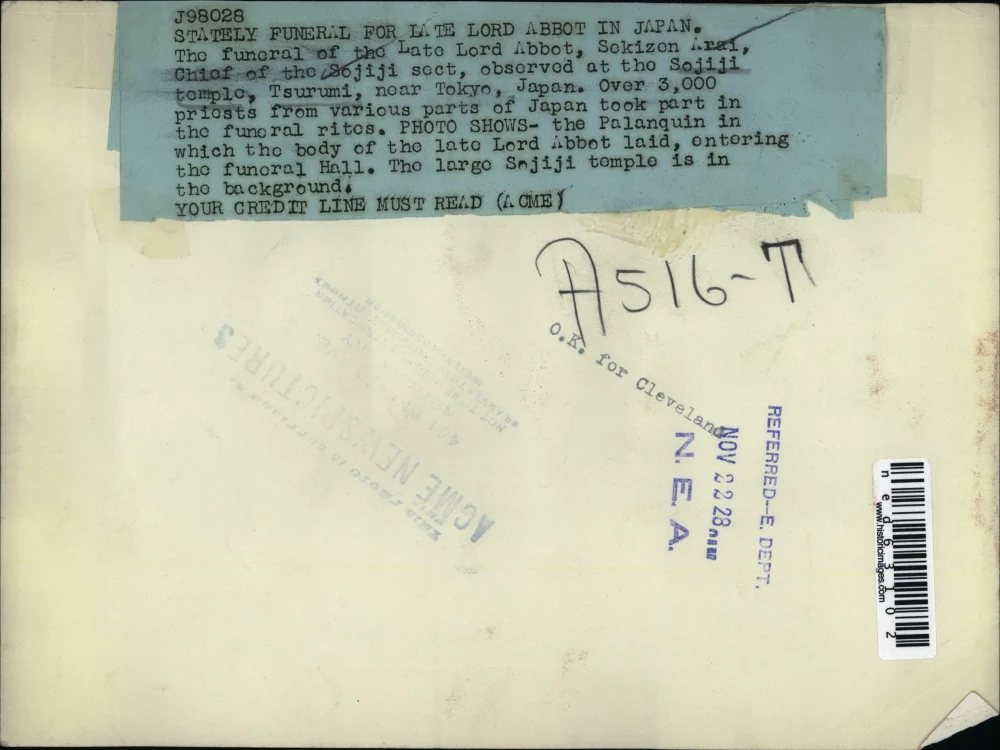 J98028
STATELY FUNERAL FOR LATE LORD ABBOT IN JAPAN.
The funeral of the Late Lord Abbot, Sekizen Arai,
Chief of the Sojiji sect, observed at the Sojiji
temple, Tsurumi, near Tokyo, Japan. Over 3,000
priests from various parts of Japan took part in
the funeral rites. PHOTO SHOWS- the Palanquin in
which the body of the late Lord Abbot laid, entering
the funeral Hall. The large Sojiji temple is in
the background.
YOUR CREDIT LINE MUST READ (ACME)
A516-T
O.K. for Cleveland
REFERRED--E. DEPT.
NOV 22 28
N. E. A.
ACME NEWSPICTURES
THIS PHOTO IS
ned63102
www.historicimages.com